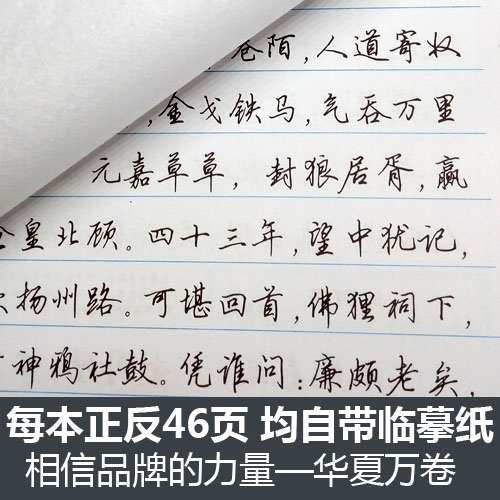 巷陌,人道寄奴
,金戈铁马,气吞万里
元嘉草草,封狼居胥,赢
仓皇北顾。四十三年,望中犹记,
火扬州路。可堪回首,佛狸祠下,
神鸦社鼓。凭谁问:廉颇老矣,
每本正反46页 均自带临摹纸
相信品牌的力量—华夏万卷